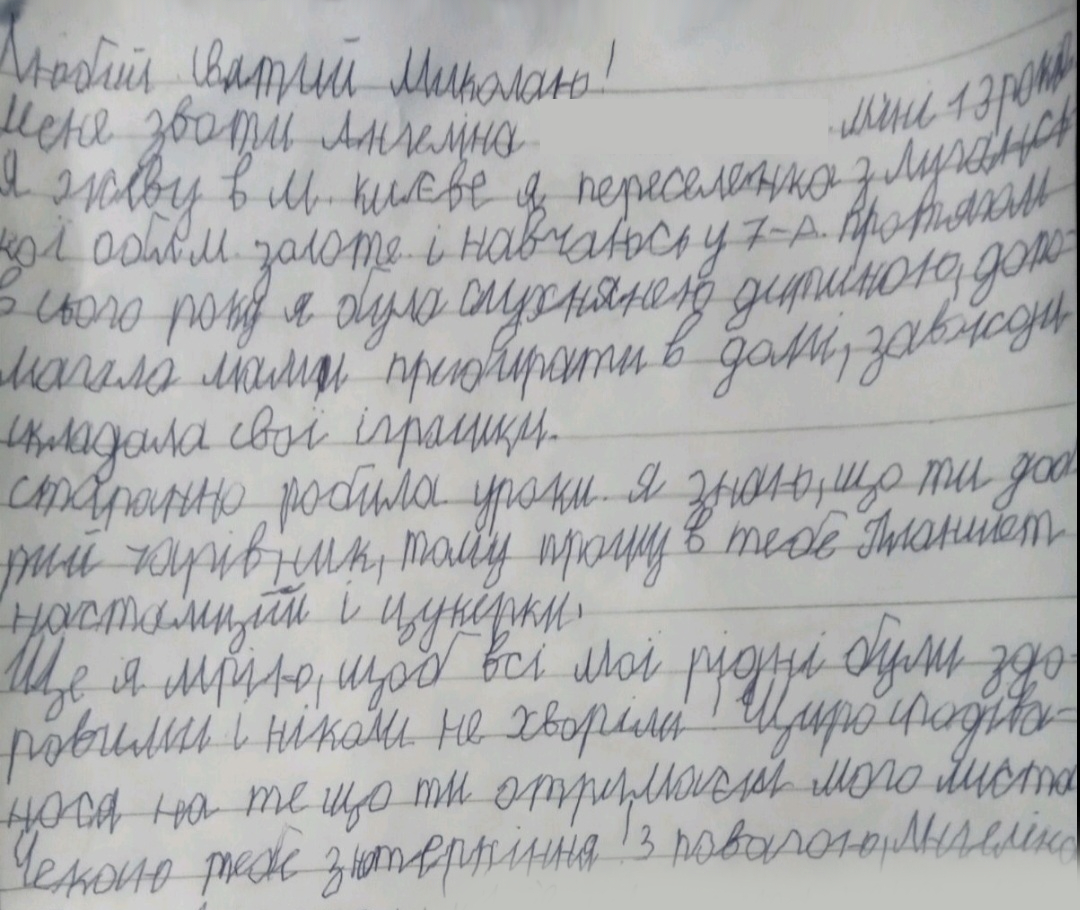 Любий Святий Миколаю!
Мене звати Ангеліна мині 13 років
Я живу в м. Києве я переселенка з Лугансь
кої обл м. золоте і навчаюсь у 7-А. Протягом
всього року я була слухняною дитиною, допо-
магала мами прибирати в домі, завжди
складала свої іграшки.
старанно робила уроки. Я знаю, що ти доб
рий чарівник, тому прошу в тебе Планшет
настамщій і цукерки.
Ще я мрію, щоб всі мої рідні були здо-
ровими і ніколи не хворіли! Щиро сподіва-
юся на те що ти отримаєш мого листа
Чекаю тебе з нютерпіння! З повагою, Ангеліна